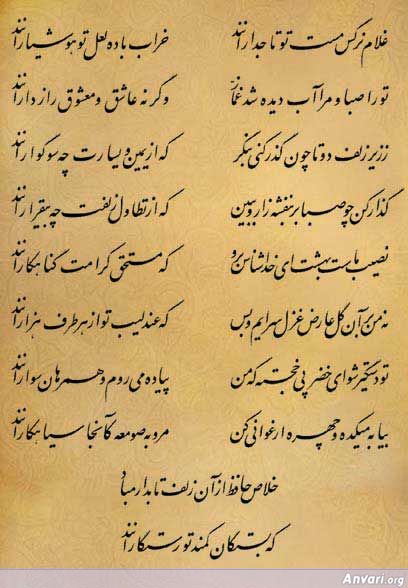 غلام نرگس مست تو تاجدارانند خراب باده لعل تو هوشیارانند
تو را صبا و مرا آب دیده شد غماز وگرنه عاشق و معشوق رازدارانند
ز زیر زلف دو تا چون گذر کنی بنگر که از یمین و یسارت چه سوگوارانند
گذار کن چو صبا بر بنفشه زار و ببین که از تطاول زلفت چه بیقرارانند
نصیب ماست بهشت ای خداشناس برو که مستحق کرامت گناهکارانند
نه من بر آن گل عارض غزل سرایم و بس که عندلیب تو از هر طرف هزارانند
تو دستگیر شو ای خضر پی خجسته که من پیاده می روم و همرهان سوارانند
بیا به میکده و چهره ارغوانی کن مرو به صومعه کآنجا سیاهکارانند
خلاص حافظ از آن زلف تابدار مباد
که بستگان کمند تو رستگارانند
Anvari.org